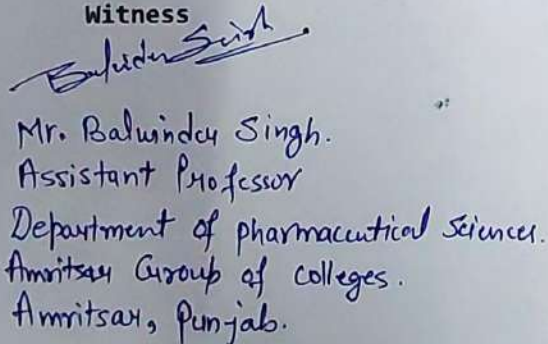 Witness
Balwinder Singh.
Mr. Balwinder Singh.
Assistant Professor
Department of pharmaceutical Sciences.
Amritsar Group of colleges.
Amritsar, Punjab.